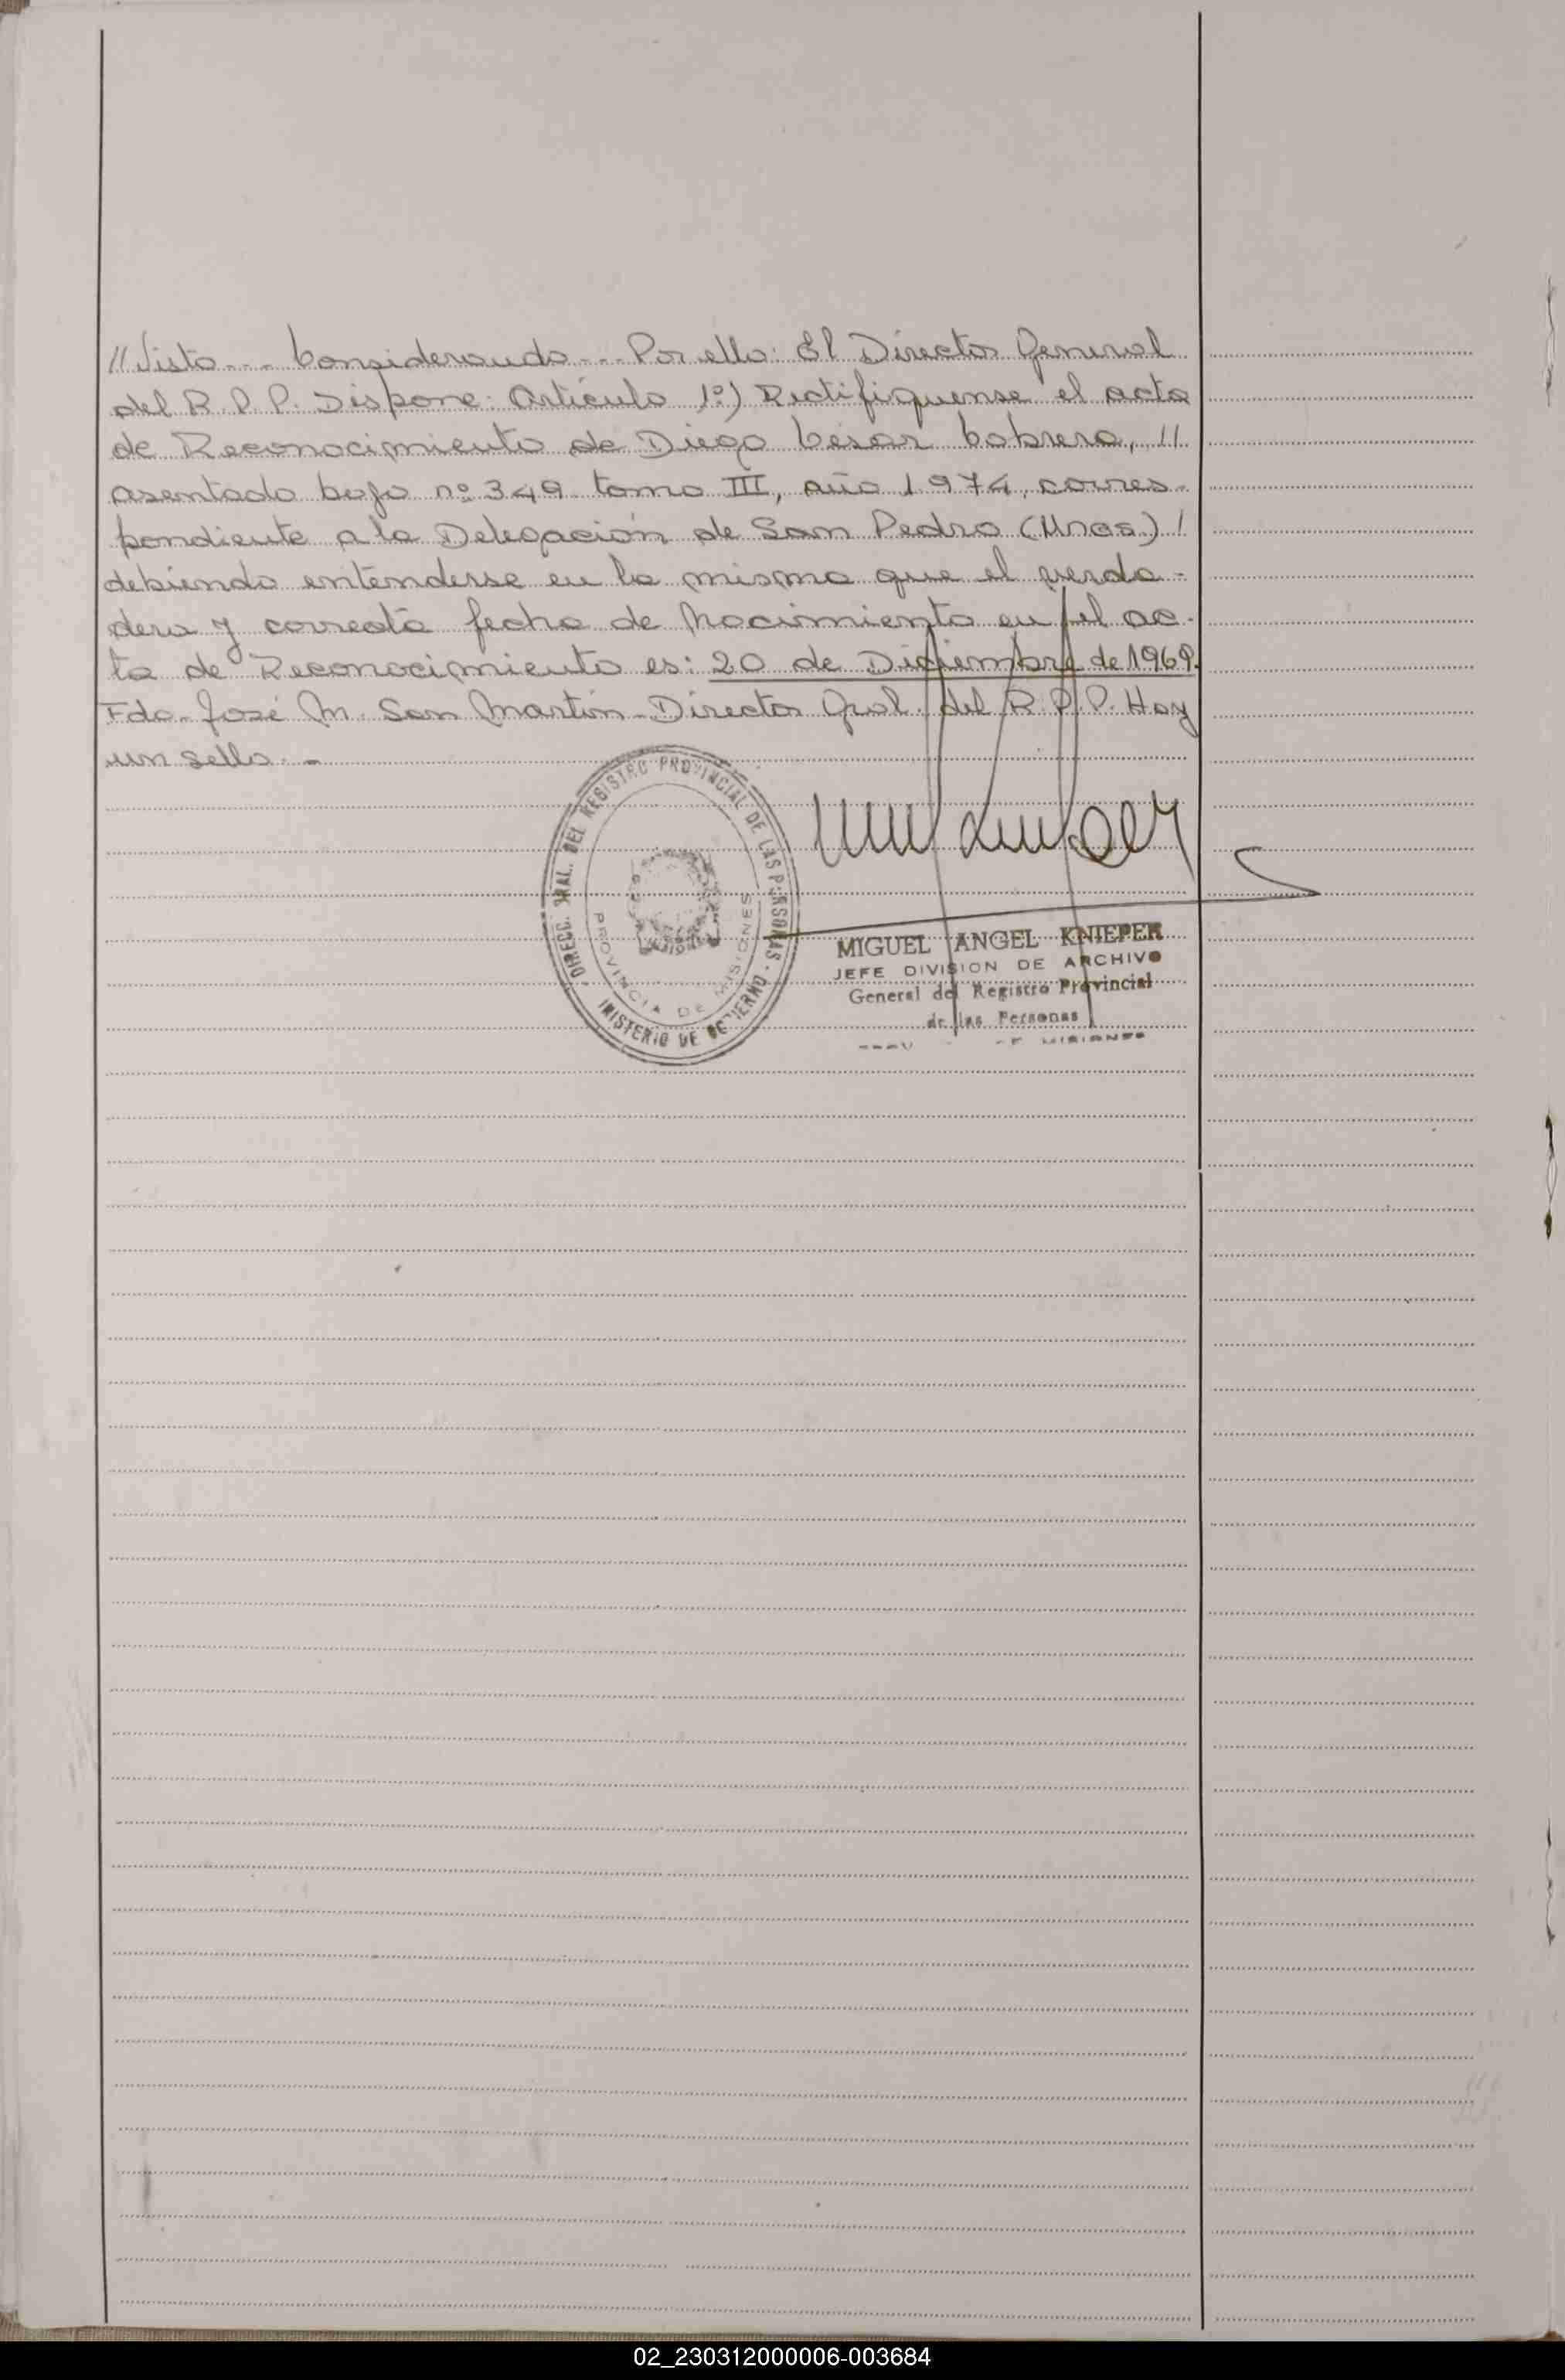 //Visto--- Considerando--- Por ello: El Director General
del R.P.P. Dispone: Artículo 1º) Rectifiquense el acta
de Reconocimiento de Diego César Cabrera, //
asentada bajo nº 349 tomo III, año 1974, corres-
pondiente a la Delegación de San Pedro (Mnes.) /
debiendo entenderse en la misma que el verda-
dera y correcta fecha de Nacimiento en el ac-
ta de Reconocimiento es: 20 de Diciembre de 1969.
Fdo. José M. San Martín - Director Gral. del R.P.P. Hay
un sello. -
DIRECC. GRAL. DEL REGISTRO PROVINCIAL DE LAS PERSONAS
PROVINCIA DE MISIONES
MINISTERIO DE GOBIERNO
MIGUEL ANGEL KNIEPER
JEFE DIVISION DE ARCHIVO
General del Registro Provincial
de las Personas
DE MISIONES
02_230312000006-003684